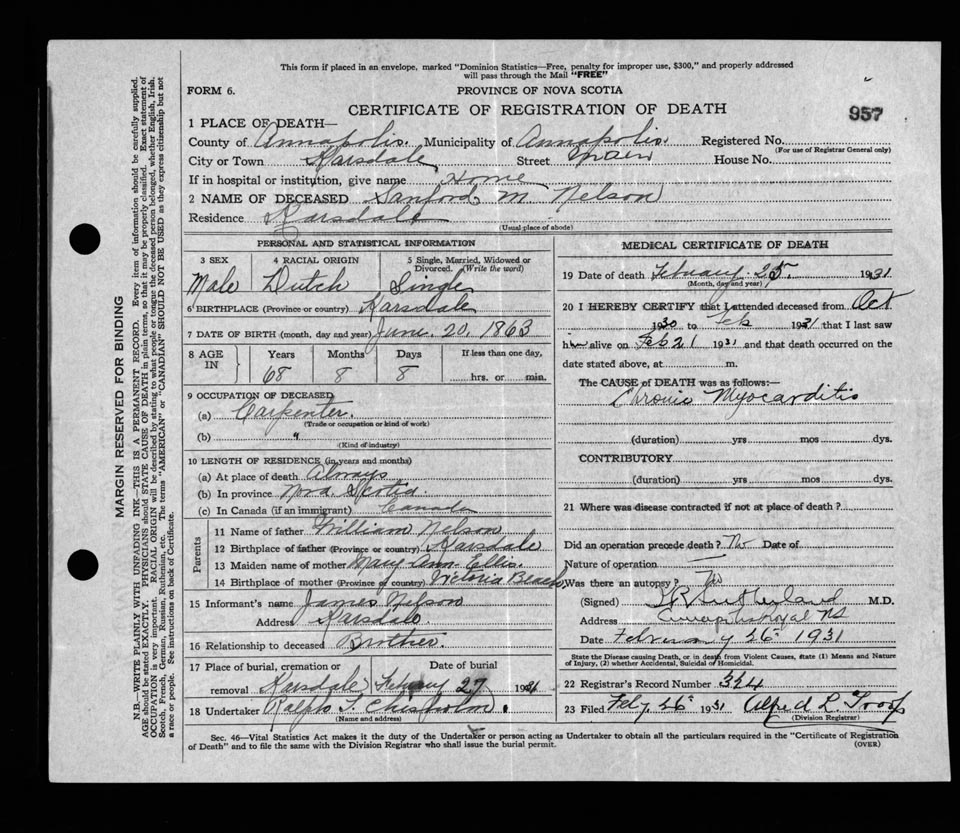 This form if placed in an envelope, marked "Dominion Statistics—Free, penalty for improper use, $300," and properly addressed
will pass through the Mail "FREE"
FORM 6.
PROVINCE OF NOVA SCOTIA
CERTIFICATE OF REGISTRATION OF DEATH
957
1 PLACE OF DEATH—
County of Annapolis. Municipality of Annapolis. Registered No.
(For use of Registrar General only)
City or Town Karsdale Street Main House No.
If in hospital or institution, give name Home
2 NAME OF DECEASED Sanford M. Nelson
Residence Karsdale
(Usual place of abode)
PERSONAL AND STATISTICAL INFORMATION
3 SEX 4 RACIAL ORIGIN 5 Single, Married, Widowed or
Divorced. (Write the word)
Male Dutch Single
6 BIRTHPLACE (Province or country) Karsdale
7 DATE OF BIRTH (month, day and year) June. 20, 1863
8 AGE IN Years Months Days If less than one day,
68 8 8 hrs. or min.
9 OCCUPATION OF DECEASED
(a) Carpenter.
(Trade or occupation or kind of work)
(b) "
(Kind of industry)
10 LENGTH OF RESIDENCE (in years and months)
(a) At place of death Always
(b) In province Nova Scotia.
(c) In Canada (if an immigrant) Canada
Parents
11 Name of father William Nelson
12 Birthplace of father (Province or country) Karsdale
13 Maiden name of mother Mary Ann Ellis.
14 Birthplace of mother (Province of country) Victoria Beach
15 Informant's name James Nelson
Address Karsdale
16 Relationship to deceased Brother
17 Place of burial, cremation or Date of burial
removal Karsdale February 27 1931
18 Undertaker Ralph T. Chisholm.
(Name and address)
MEDICAL CERTIFICATE OF DEATH
19 Date of death February 25. 1931
(Month, day and year)
20 I HEREBY CERTIFY that I attended deceased from Oct
1930 to Feb 1931 that I last saw
him alive on Feb 21 1931 and that death occurred on the
date stated above, at m.
The CAUSE of DEATH was as follows:—
Chronic Myocarditis
(duration) yrs mos dys.
CONTRIBUTORY
(duration) yrs mos dys.
21 Where was disease contracted if not at place of death?
Did an operation precede death? No Date of
Nature of operation —
Was there an autopsy? No
(Signed) Sutherland M.D.
Address Annapolis Royal NS
Date February 26 1931
State the Disease causing Death, or in death from Violent Causes, state (1) Means and Nature
of Injury, (2) whether Accidental, Suicidal or Homicidal.
22 Registrar's Record Number 324
23 Filed Feby. 26 1931 Alfred L. Troop
(Division Registrar)
Sec. 46—Vital Statistics Act makes it the duty of the Undertaker or person acting as Undertaker to obtain all the particulars required in the "Certificate of Registration
of Death" and to file the same with the Division Registrar who shall issue the burial permit. (OVER)
MARGIN RESERVED FOR BINDING
N.B.—WRITE PLAINLY WITH UNFADING INK—THIS IS A PERMANENT RECORD. Every item of information should be carefully supplied.
AGE should be stated EXACTLY. PHYSICIANS should STATE CAUSE OF DEATH in plain terms, so that it may be properly classified. Exact statement of
OCCUPATION is very important. RACIAL ORIGIN will be described by stating to what people or tongue the deceased person belonged, whether English, Irish,
Scotch, French, German, Russian, Ruthenian, etc. The terms "AMERICAN" or "CANADIAN" SHOULD NOT BE USED as they express citizenship but not
a race or people. See instructions on back of Certificate.